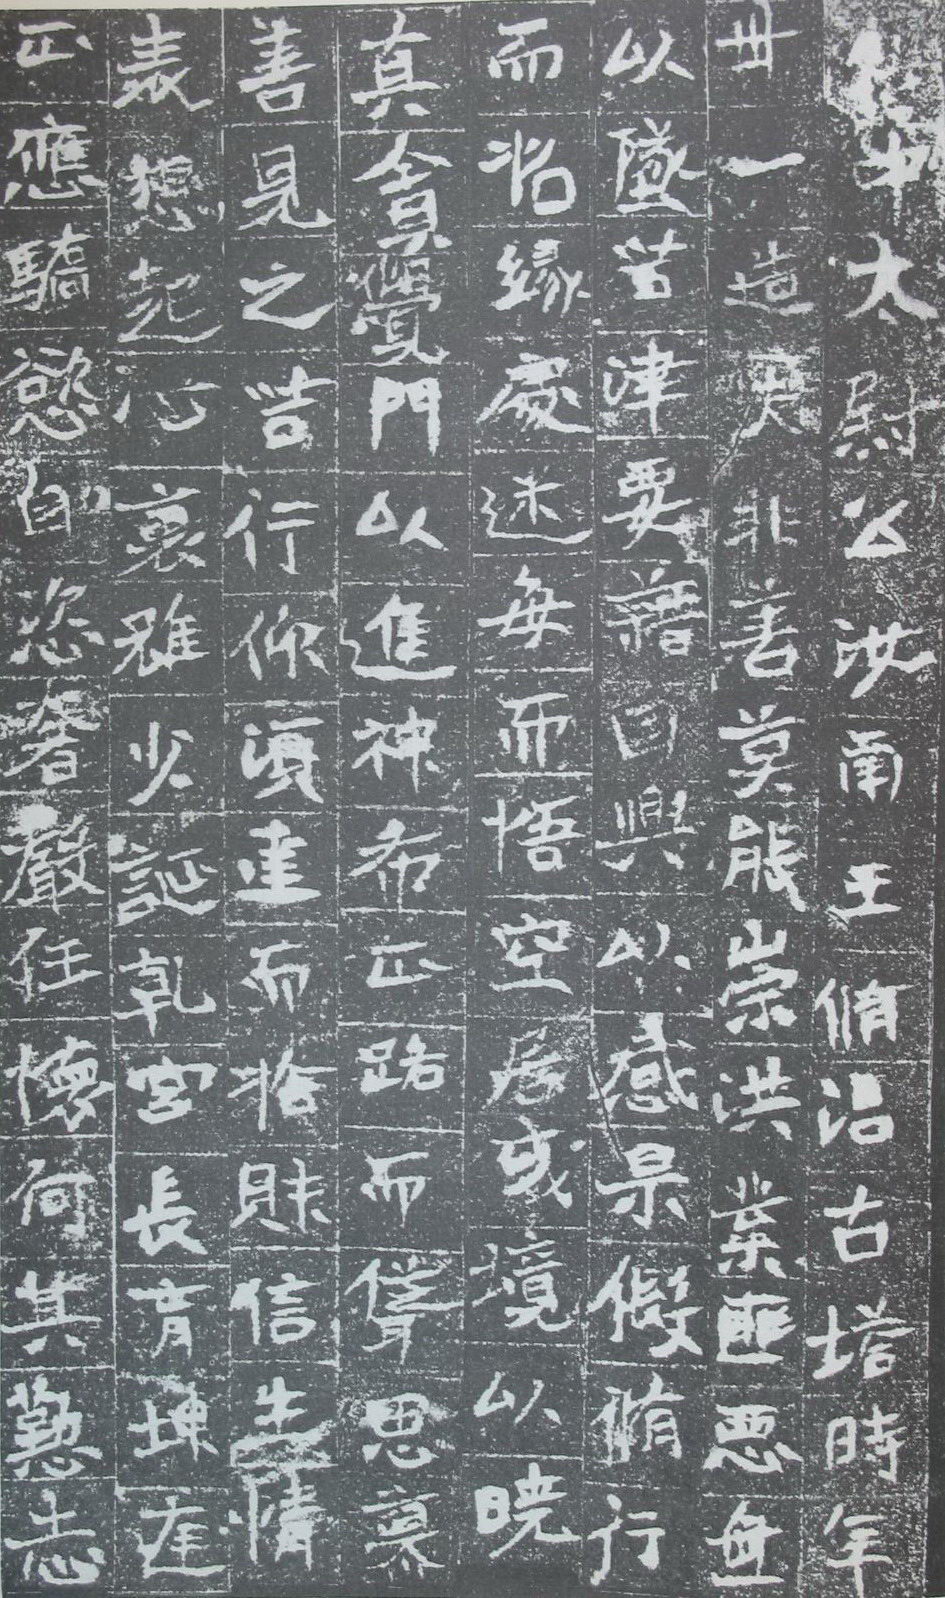 中太尉公汝南王脩治古塔時年
卅一造夫非善莫能崇洪業匪惡無
以墜苦津要藉因興以感果假脩行
而始緣處迷每而悟空居或境以曉
真會覺門以進神布正路而聳思慕
善見之喆行仰頃建而捨財信生情
表想起心裏雖少誕乳宮長育埤
正應驕慾自恣奢嚴任懷何其懃志